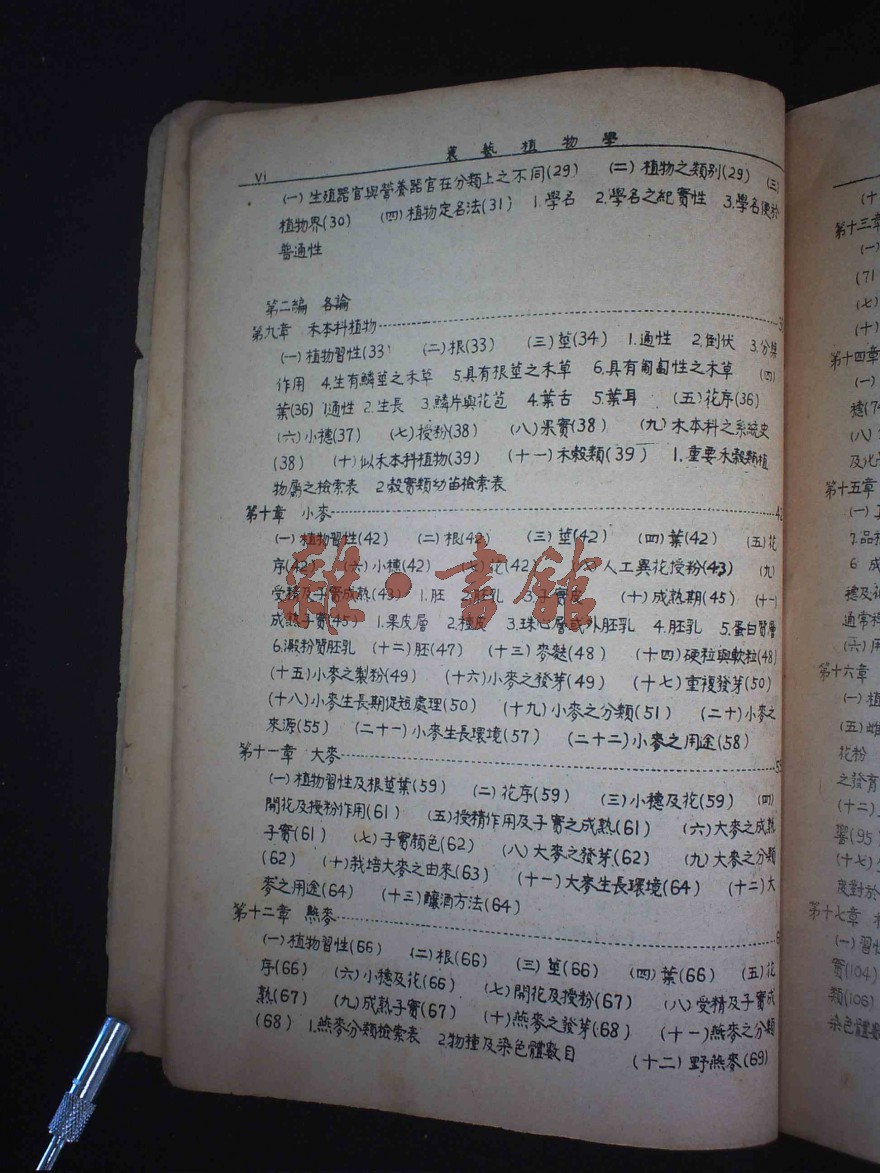 農藝植物學
vi
(一)生殖器官與營養器官在分類上之不同(29) (二)植物之類別(29) (三)
植物界(30) (四)植物定名法(31) 1.學名 2.學名之紀實性 3.學名便於
普通性
第二編 各論
第九章 禾本科植物
(一)植物習性(33) (二)根(33) (三)莖(34) 1.通性 2.倒伏 3.分櫱
作用 4.生有鱗莖之禾草 5.具有根莖之禾草 6.具有匍匐性之禾草 (四)
葉(36) 1.通性 2.生長 3.鱗片與花苞 4.葉舌 5.葉耳 (五)花序(36)
(六)小穗(37) (七)授粉(38) (八)果實(38) (九)禾本科之系統史
(38) (十)似禾本科植物(39) (十一)禾穀類(39) 1.重要禾穀類植
物屬之檢索表 2.穀實類幼苗檢索表
第十章 小麥 42
(一)植物習性(42) (二)根(42) (三)莖(42) (四)葉(42) (五)花
序(42) (六)小穗(42) (七)花(42) (八)人工異花授粉(43) (九)
受精及子實成熟(43) 1.胚 2.胚乳 3.子實皮 (十)成熟期(45) (十一)
成熟子實(45) 1.果皮層 2.種皮 3.珠心層或外胚乳 4.胚乳 5.蛋白質層
6.澱粉質胚乳 (十二)胚(47) (十三)麥麩(48) (十四)硬粒與軟粒(48)
(十五)小麥之製粉(49) (十六)小麥之發芽(49) (十七)重複發芽(50)
(十八)小麥生長期促短處理(50) (十九)小麥之分類(51) (二十)小麥之
來源(55) (二十一)小麥生長環境(57) (二十二)小麥之用途(58)
第十一章 大麥
(一)植物習性及根莖葉(59) (二)花序(59) (三)小穗及花(59) (四)
開花及授粉作用(61) (五)授精作用及子實之成熟(61) (六)大麥之成熟
子實(61) (七)子實顏色(62) (八)大麥之發芽(62) (九)大麥之分類
(62) (十)栽培大麥之由來(63) (十一)大麥生長環境(64) (十二)大
麥之用途(64) (十三)釀酒方法(64)
第十二章 燕麥
(一)植物習性(66) (二)根(66) (三)莖(66) (四)葉(66) (五)花
序(66) (六)小穗及花(66) (七)開花及授粉(67) (八)受精及子實成
熟(67) (九)成熟子實(67) (十)燕麥之發芽(68) (十一)燕麥之分類
(68) 1.燕麥分類檢索表 2.物種及染色體數目 (十二)野燕麥(69)
雜·書館
(十
第十三章
(一)
(71
(七)
(十)
第十四章
(一)
穗(74
(八)
及化學
第十五章
(一)
7.品種
6 成
穗及花
通常
(六)用
第十六章
(一)植
(五)雌
花粉
之發育
(十二)
響(95
(十七)
度對於
第十七章
(一)習性
實(104)
類(106)
染色體數